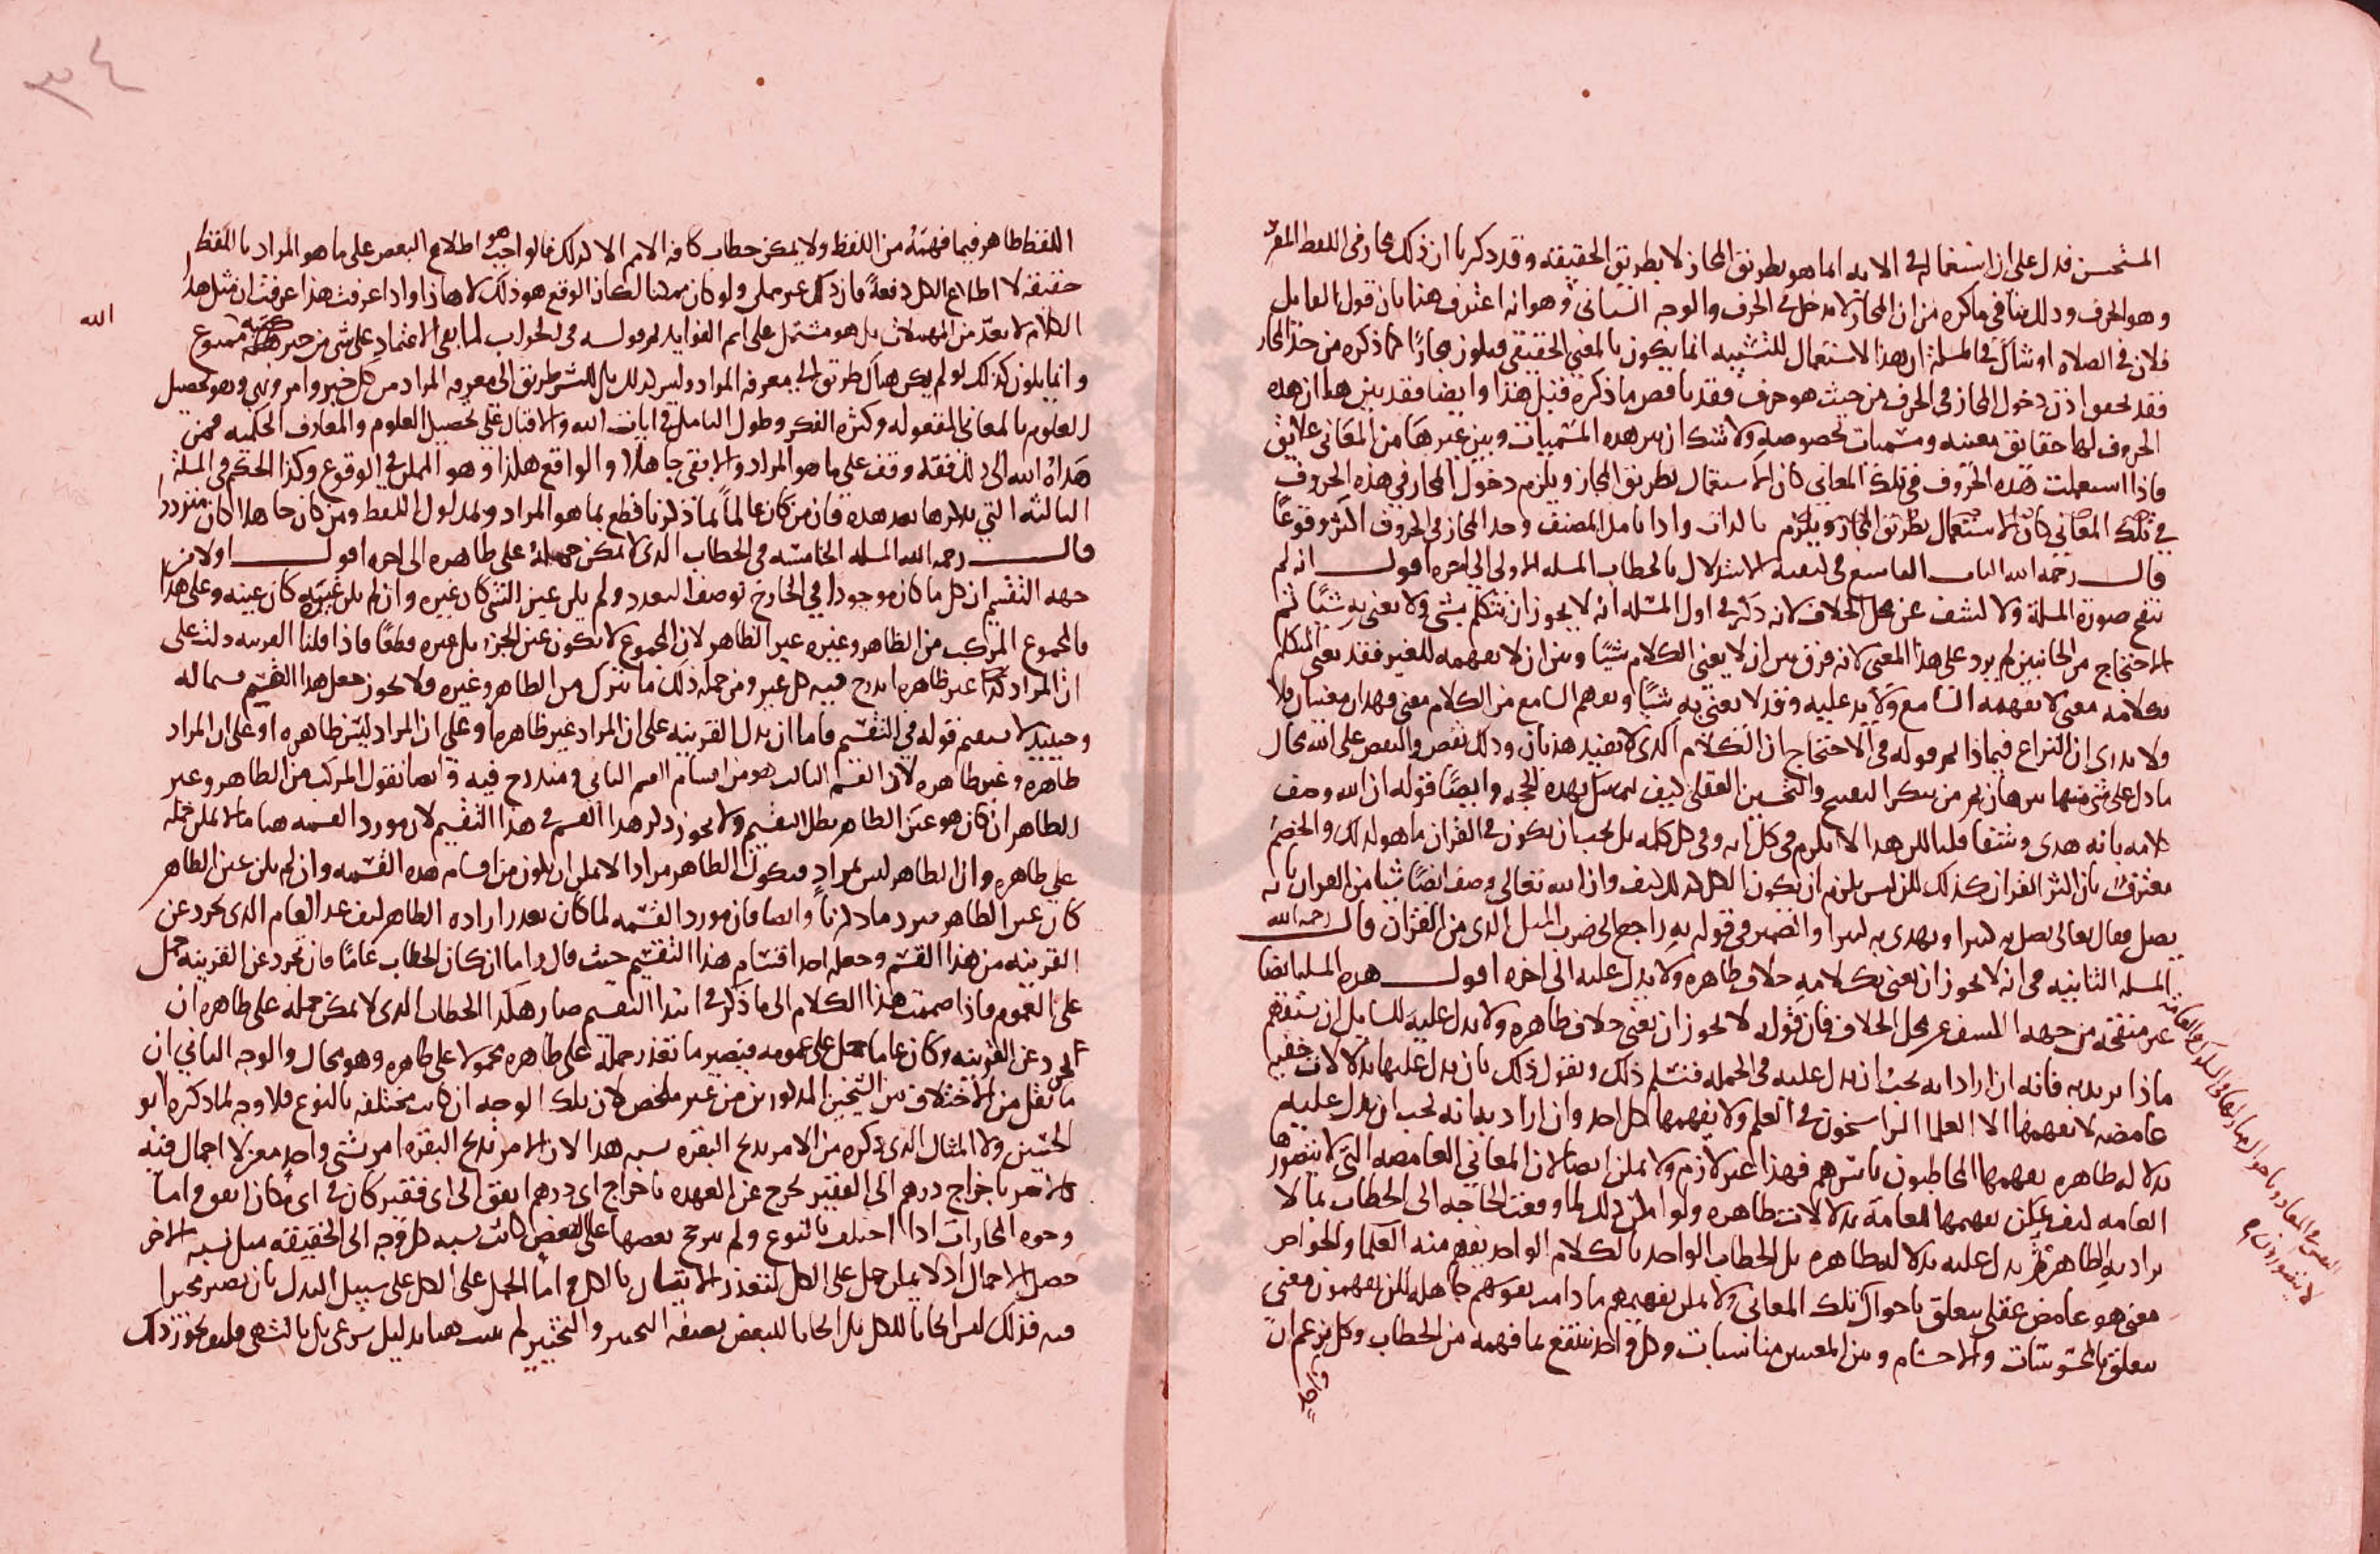 المستحسن فدل على ان استعماله في الآية انما هو بطريق المجاز لا بطريق الحقيقة وقد ذكرنا ان ذلك مجاز في اللفظ المفرد
وهو الحرف وذلك ينافي ما ذكره من ان المجاز لا يدخل في الحرف والوجه الثاني هو انه اعترف هنا بان قول القايل
فلان في الصلاه او شاك في المسلة ان هذا الاستعمال للتشبيه انما يكون بالمعنى الحقيقي فيكون مجازًا كما ذكره من حد المجاز
فقد دخول المجاز في الحرف من حيث هو حرف فقد ناقض ما ذكره قبل هذا وايضا فقد بين هنا ان هذه
الحروف لها حقائق معينه ومسميات مخصوصه ولا شك ان بين هذه المسميات وبين غيرها من المعاني علايق
فاذا استعملت هذه الحروف في تلك المعاني كان الاستعمال بطريق المجاز ويلزم دخول المجاز في هذه الحروف
في تلك المعاني كان الاستعمال بطريق المجاز ويلزم بالذات واذا تامل المصنف وجد المجاز في الحروف اكثر وقوعًا
قال رحمه الله الباب التاسع في كيفية الاستدلال بالخطاب المسله الاولى الى اخره اقول انه لم
ينقح صورة المسلة ولا كشف عن محل الخلاف لانه ذكر في اول المسله انه لا يجوز ان يتكلم بشي ولا يعني به شيًا ثم
الاحتجاج من الجانبين لم يرد على هذا المعنى لانه فرق بين ان لا يعني الكلام شيًا وبين ان لا يفهمه للغير فقد يعني المتكلم
بكلامه معنى لا يفهمه السامع ولا يدل عليه وقد لا يعني به شيًا ويفهم السامع من الكلام معنى فهذان معنيان فلا
ولا ندري ان النزاع فيماذا ثم قوله في الاحتجاج ان الكلام الذي لا يفيد هذيان وذلك نقص والنقص على الله محال
ما دل على شي منهما برهان ثم من ينكر التقبيح والتحسين العقلي كيف يتمسك بهذه الحجه وايضًا قوله ان الله وصف
كلامه بانه هدى وشفا قلنا لكن هذا لا يلزم في كل ايه وفي كل كلمه بل يجب ان يكون في القران ما هو كذلك والخصم
معترف بان اكثر القران كذلك لكن ليس يلزم ان يكون الكل كذلك كيف وان الله تعالى وصف ايضًا شيا من القران بانه
يضل فقال تعالى يضل به كثيرا ويهدي به كثيرا والضمير في قوله به راجع الى ضرب المثل الذي من القران قال رحمه الله
المسله الثانيه في انه لا يجوز ان يعني بكلامه خلاف ظاهره ولا يدل عليه الى اخره اقول هذه المسله ايضا
غير منقحه من جهه الكشف عن محل الخلاف فان قوله لا يجوز ان يعني خلاف ظاهره ولا يدل عليه للسايل ان يستفهم
ماذا يريد به فانه ان اراد انه يجب ان يدل عليه في الجمله فنسلم ذلك ونقول ذلك بان يدل عليها بدلالات خفيه
غامضه لا يفهمها الا العلما الراسخون في العلم ولا يفهمها كل احد وان اراد به انه يجب ان يدل عليه
بدلاله ظاهره يفهمها المخاطبون باسرهم فهذا غير لازم ولا يمكن ايضا لان المعاني الغامضه التي لا يتصورها
العامه كيف يمكن يفهمها العامه بدلالات ظاهره ولو امكن ذلك لما وقعت الحاجه الى الخطاب بما لا
يراد به الظاهر ثم يدل عليه بدلاله ظاهره بل الخطاب الواحد بالكلام الواحد يفهم منه العلما والخواص
معنى هو غامض عقلي يتعلق باحوال تلك المعاني ولا يمكن يفهمهم ما دامت نفوسهم جاهله لكن يفهمون معنى
يتعلق بالمحسوسات والاجسام وبين المعنيين مناسبات وكل واحد ينتفع بما فهمه من الخطاب وكل يزعم ان
واحد
لا يتصورون م
٣٤
اللفظ ظاهر فيما فهمته من اللفظ ولا يمكن خطاب كافه الامم الا كذلك فالواجب هو اطلاع البعض على ما هو المراد باللفظ
حقيقة لا اطلاع الكل دفعةً فان ذلك غير ممكن ولو كان ممكنا لكان الوقع هو ذلك لا هذا واذا عرفت هذا عرفت ان مثل هذا
الكلام لا يعدّ من المهملات بل هو مشتمل على اتم الفوايد ثم قوله في الجواب لما بقي الاعتماد على شي من خبر ممنوع
الله
وانما يكون كذلك لو لم يكن هناك طريق الى معرفه المراد وليس كذلك بل للبشر طريق الى معرفه المراد من كل خبر وامر ونهي وهو تحصيل
العلوم بالمعاني المعقوله وكثره الفكر وطول التامل في ايات الله والاقبال على تحصيل العلوم والمعارف الحكميه فمن
هداه الله الى ذلك فقد وقف على ما هو المراد والا بقي جاهلا والواقع هكذا وهو الممكن في الوقوع وكذا الحكم في المسلة
الثالثه التي يذكرها بعد هذه فان من كان عالماً بما ذكرنا قطع بما هو المراد وبمدلول اللفظ ومن كان جاهلا كان متردد
قال رحمه الله المسله الخامسه في الخطاب الذي لا يمكن حمله على ظاهره الى اخره اقول اولا من
جهه التقسيم ان كل ما كان موجودا في الخارج توصف التعدد ولم يكن عين الشي كان غيره وان لم يكن غيره كان عينه وعلى هذا
فالمجموع المركب من الظاهر وغيره غير الظاهر لان المجموع لا يكون عين الجزء بل غيره قطعًا فاذا قلنا القرينه دلت على
ان المراد كذا غير ظاهره اندرج فيه كل غير ومن جمله ذلك ما يتركب من الظاهر وغيره فلا يجوز جعل هذا القسم قسما له
وحينيذ لا يستقيم قوله في التقسيم فاما ان تدل القرينه على ان المراد غير ظاهره او على ان المراد ليس ظاهره او على ان المراد
ظاهره وغير ظاهره لان القسم الثالث هو من اقسام القسم الثاني ومندرج فيه وايضا نقول المركب من الظاهر وغير
الظاهر ان كان هو عين الظاهر بطل التقسيم ولا يجوز ذكر هذا القسم في هذا التقسيم لان مورد القسمه هنا ما لا يمكن حمله
على ظاهره وان الظاهر ليس بمراد فيكون الظاهر مرادا لا يمكن ان يكون من اقسام هذه القسمه وان لم يكن عين الظاهر
كان غير الظاهر فيرد ما ذكرناً وايضا فان مورد القسمه لما كان تعذر اراده الظاهر كيف عد العام الذي تجرد عن
القرينه من هذا القسم وجعله احد اقسام هذا التقسيم حيث قال واما ان كان الخطاب عامًا فان تجرد عن القرينه حمل
على العموم فاذا ضممت هذا الكلام الى ما ذكر في ابتدا التقسيم صار هكذا الخطاب الذي لا يمكن حمله على ظاهره ان
تجرد عن القرينه وكان عاما حمل على عمومه فيصير ما تعذر حمله على ظاهره محمولا على ظاهره وهو محال والوجه الثاني ان
ما نقل من الاختلاف بين الشيخين المذكورين من غير ملخص لان تلك الوجه ان كانت مختلفه بالنوع فلا وجه لما ذكره ابو
الحسين ولا المثال الذي ذكره من الامر بذبح البقره يشبه هذا لان الامر بذبح البقره امر بشي واحد معين لا اجمال فيه
كالامر باخراج درهم الى الفقير يخرج عن العهده باخراج اي درهم اتفق الى اي فقير كان في اي مكان اتفق واما
وجوه المجازات اذا اختلفت بالنوع ولم يترجح بعضها على البعض كانت نسبه كل وجه الى الحقيقه مثل نسبه الاخر
حصل الاجمال اذ لا يمكن حمل على الكل لتعذر الاتيان بالكل واما الحمل على الكل على سبيل البدل بان يصير مخيرا
فيه فذلك ليس ايجابا للكل بل ايجابا للبعض بصفه التخيير والتخيير لم يثبت هنا بدليل شرعي بل بالتشهي فكيف يجوز ذلك